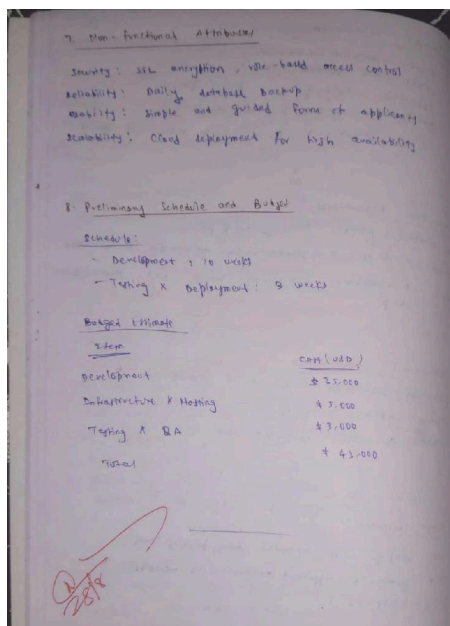 7. Non-functional Attributes
Security: SSL encryption, role-based access control
Reliability: Daily database backup
Usability: Simple and guided forms of applicants
Scalability: Cloud deployment for high availability
8. Preliminary Schedule and Budget
Schedule:
- Development : 10 weeks
- Testing & Deployment: 8 weeks
Budget Estimate
Item Cost (USD)
Development $ 35,000
Infrastructure & Hosting $ 5,000
Testing & QA $ 3,000
Total $ 43,000
28/8